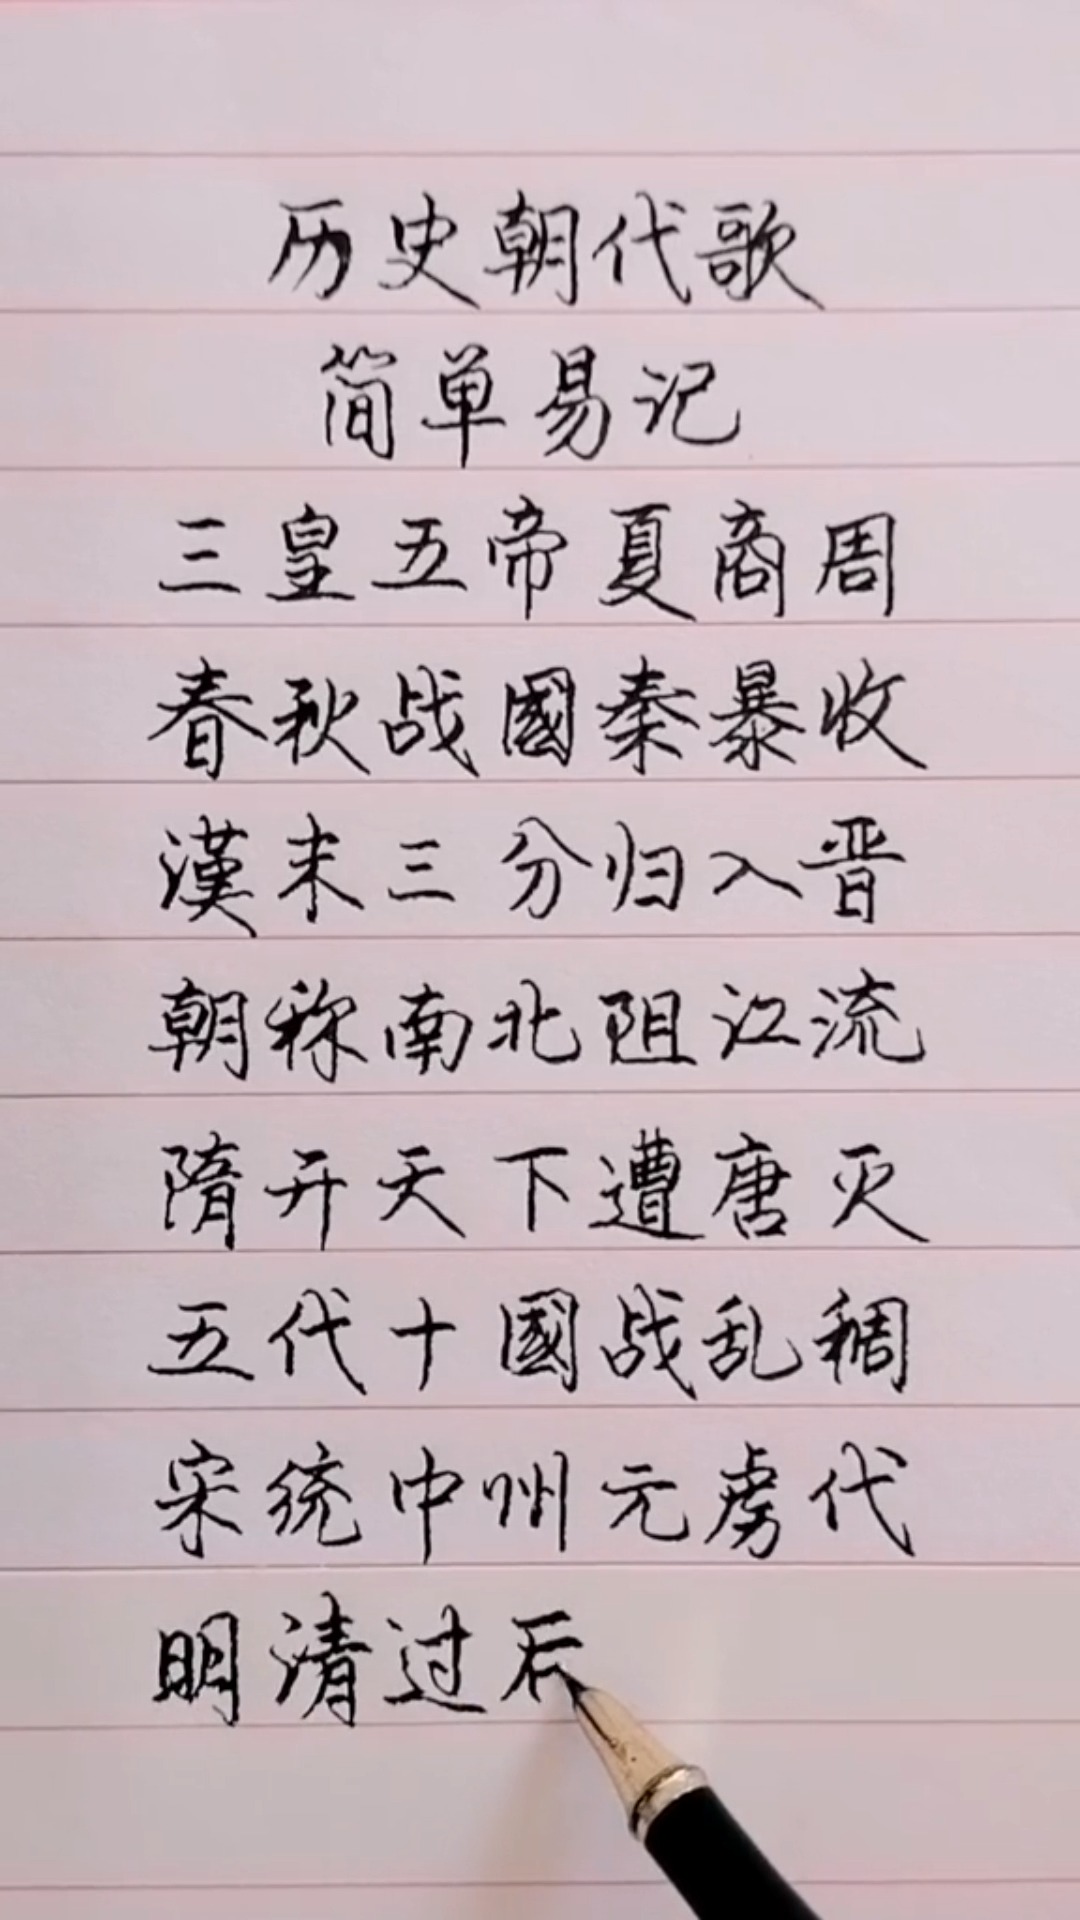 历史朝代歌
简单易记
三皇五帝夏商周
春秋战國秦暴收
漢末三分归入晋
朝称南北阻江流
隋开天下遭唐灭
五代十國战乱稠
宋统中州元虏代
明清过后